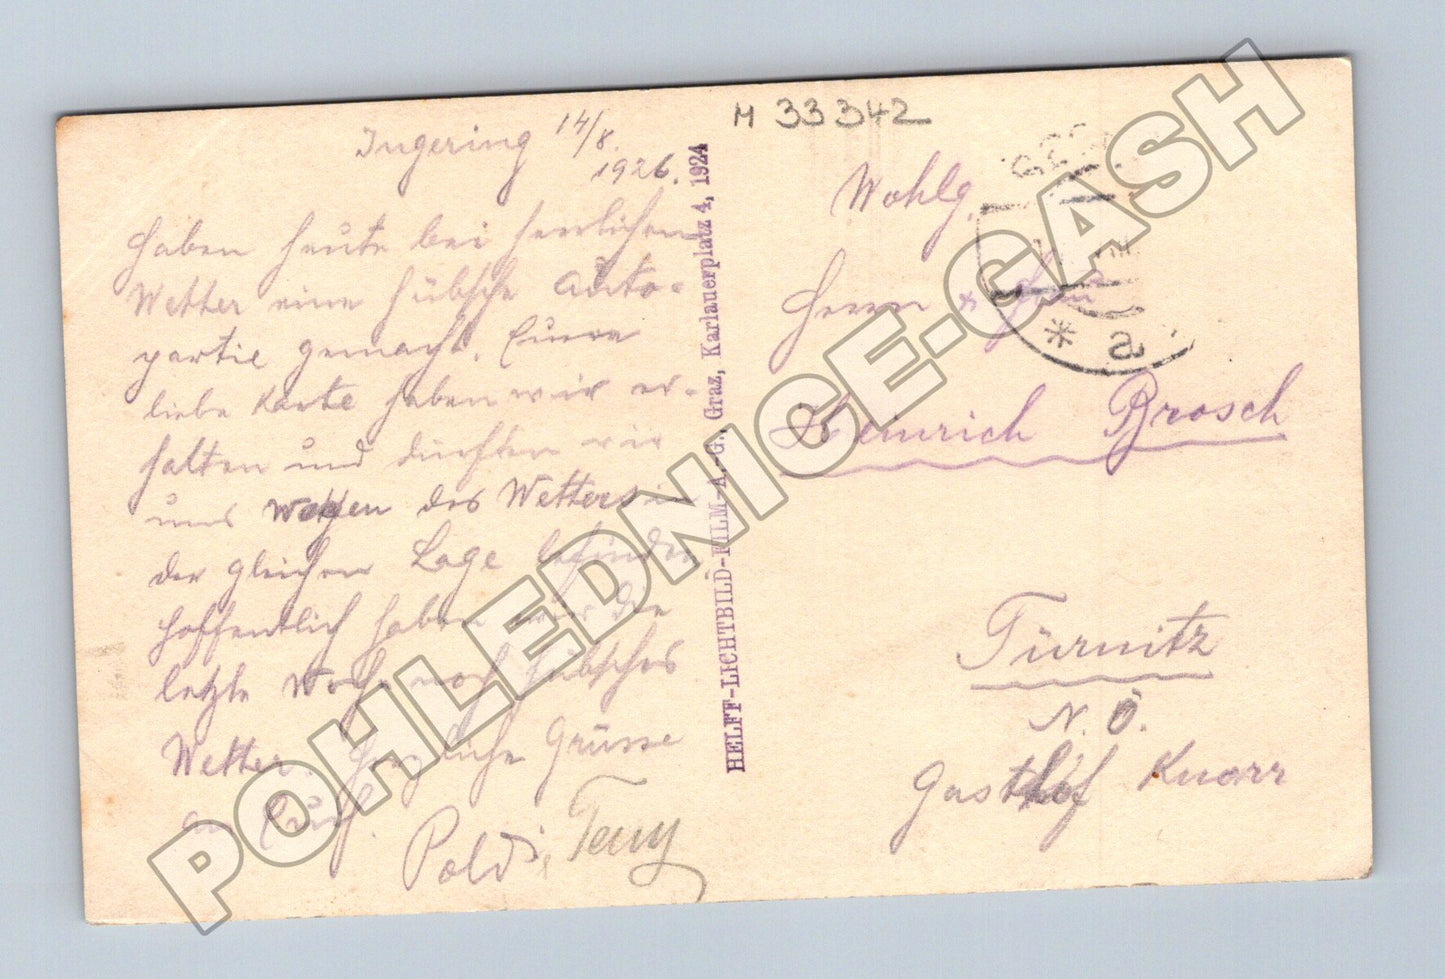 M 33342
Ingering 14/8.
1926.
Haben heute bei herrlichem
Wetter eine hübsche Auto-
partie gemacht. Eure
liebe Karte haben wir er-
halten und dürften wir
uns wegen des Wetters in
der gleichen Lage befinden
hoffentlich haben wir die
letzte Woche noch hübsches
Wetter. Herzliche Grüsse
an Euch.
Poldi, Terry
HELFF-LICHTBILD-FILM-A.-G., Graz, Karlauerplatz 4, 1924
Wohlg.
Herrn & Frau
Heinrich Brosch
Türnitz
N. Ö.
Gasthof Knorr
* a
POHLEDNICE-GASH